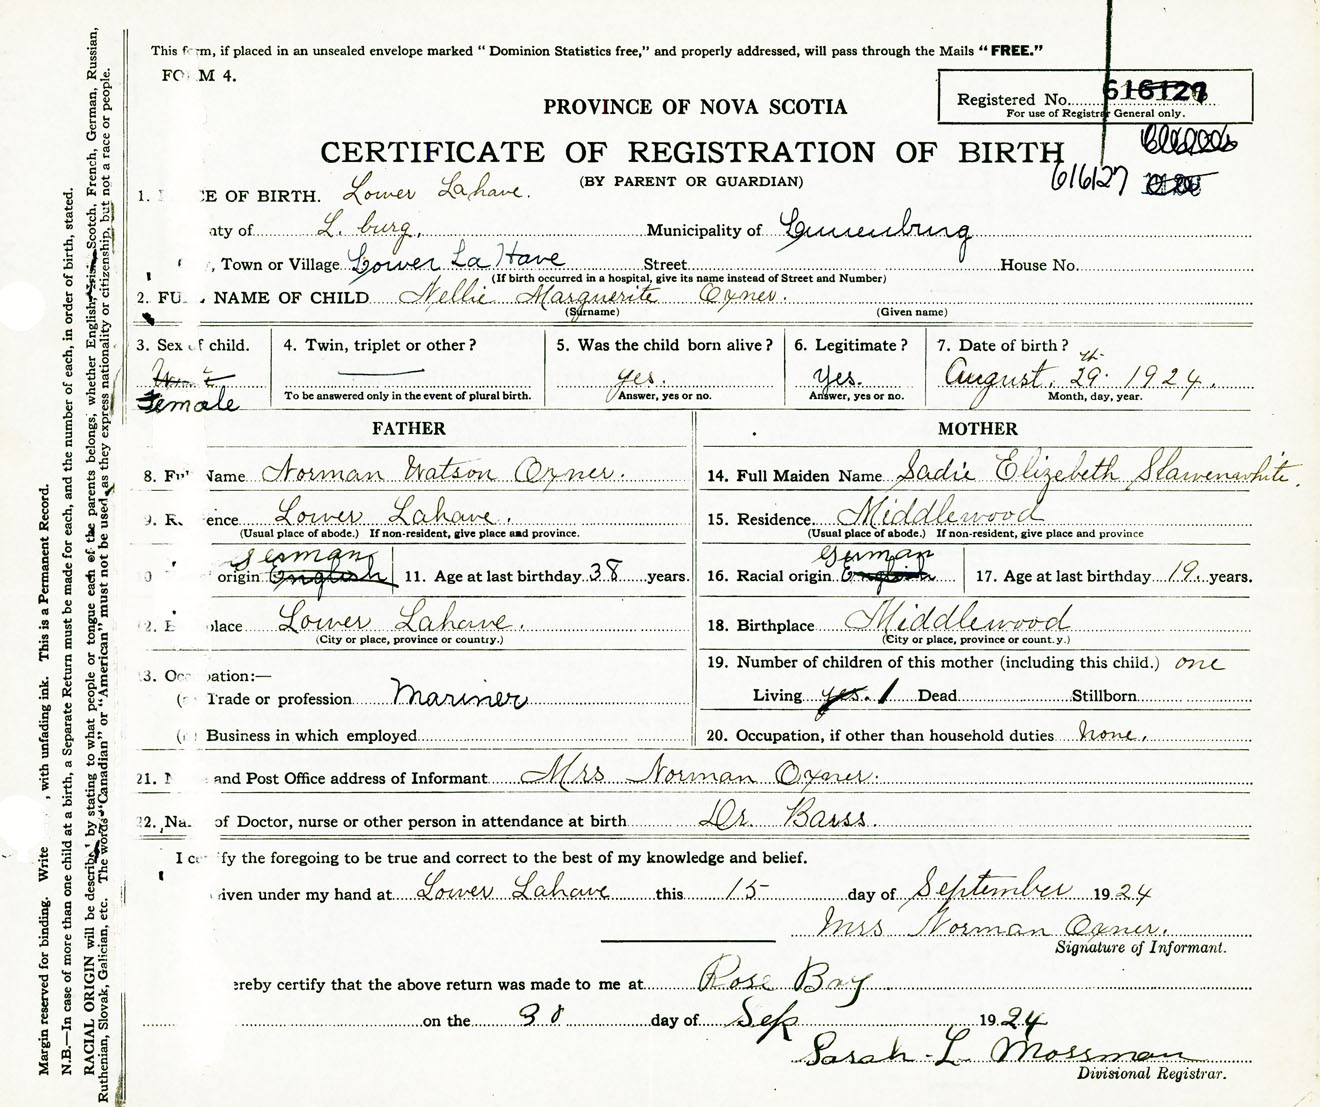 This form, if placed in an unsealed envelope marked "Dominion Statistics free," and properly addressed, will pass through the Mails "FREE."
FO M 4.
Registered No. 616127
For use of Registrar General only.
PROVINCE OF NOVA SCOTIA
CERTIFICATE OF REGISTRATION OF BIRTH
616127
(BY PARENT OR GUARDIAN)
1. CE OF BIRTH. Lower Lahave.
nty of L. burg. Municipality of Lunenburg
, Town or Village Lower La Have Street House No.
(If birth occurred in a hospital, give its name instead of Street and Number)
2. FU L NAME OF CHILD Nellie Marguerite Oxner.
(Surname) (Given name)
3. Sex of child. 4. Twin, triplet or other? 5. Was the child born alive? 6. Legitimate? 7. Date of birth?
yes. Yes. August. 29th 1924.
Female To be answered only in the event of plural birth. Answer, yes or no. Answer, yes or no. Month, day, year.
FATHER MOTHER
8. Ful Name Norman Watson Oxner. 14. Full Maiden Name Sadie Elizebeth Slawenwhite.
9. R ence Lower Lahave. 15. Residence. Middlewood
(Usual place of abode.) If non-resident, give place and province. (Usual place of abode.) If non-resident, give place and province
German German
10 origin English 11. Age at last birthday 38 years. 16. Racial origin English 17. Age at last birthday 19. years.
12. B place Lower Lahave. 18. Birthplace Middlewood
(City or place, province or country.) (City or place, province or count.y.)
13. Occ pation:— 19. Number of children of this mother (including this child.) one
(a Trade or profession Mariner Living yes. 1 Dead Stillborn
( Business in which employed 20. Occupation, if other than household duties none.
21. N and Post Office address of Informant Mrs Norman Oxner.
22. Na of Doctor, nurse or other person in attendance at birth Dr. Barss.
I certify the foregoing to be true and correct to the best of my knowledge and belief.
Given under my hand at Lower Lahave this 15 day of September 1924
Mrs Norman Oxner.
Signature of Informant.
ereby certify that the above return was made to me at Rose Bay
on the 30 day of Sep 1924
Sarah L Mossman
Divisional Registrar.
Margin reserved for binding. Write , with unfading ink. This is a Permanent Record.
N.B.—In case of more than one child at a birth, a Separate Return must be made for each, and the number of each, in order of birth, stated.
RACIAL ORIGIN will be describe by stating to what people or tongue each of the parents belongs, whether English, Irish, Scotch, French, German, Russian,
Ruthenian, Slovak, Galician, etc. The words "Canadian" or "American" must not be used, as they express nationality or citizenship, but not a race or people.